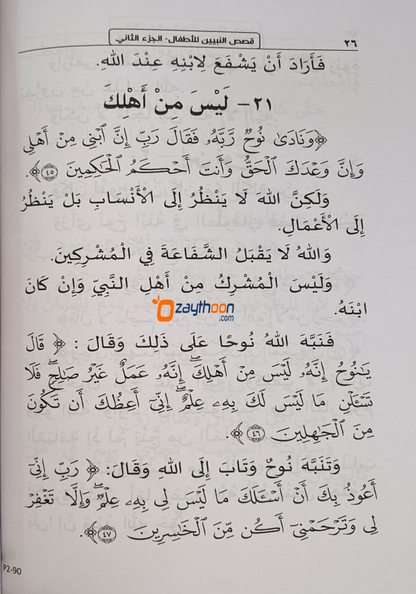 ٢٦ قصص النبيين للأطفال- الجزء الثاني
فَأَرَادَ أَنْ يَشْفَعَ لِابْنِهِ عِنْدَ اللهِ.
٢١- لَيْسَ مِنْ أَهْلِكَ
﴿وَنَادَىٰ نُوحٌ رَّبَّهُ فَقَالَ رَبِّ إِنَّ ابْنِي مِنْ أَهْلِي
وَإِنَّ وَعْدَكَ الْحَقُّ وَأَنتَ أَحْكَمُ الْحَاكِمِينَ ٤٥﴾.
وَلَكِنَّ اللهَ لَا يَنْظُرُ إِلَى الْأَنْسَابِ بَلْ يَنْظُرُ
إِلَى الْأَعْمَالِ.
وَاللهُ لَا يَقْبَلُ الشَّفَاعَةَ فِي الْمُشْرِكِينَ.
وَلَيْسَ الْمُشْرِكُ مِنْ أَهْلِ النَّبِيِّ وَإِنْ كَانَ
ابْنَهُ.
zaythoon.com
فَنَبَّهَ اللهُ نُوحًا عَلَى ذَلِكَ وَقَالَ: ﴿ قَالَ
يَٰنُوحُ إِنَّهُ لَيْسَ مِنْ أَهْلِكَ ۖ إِنَّهُ عَمَلٌ غَيْرُ صَٰلِحٍ ۖ فَلَا
تَسْـَٔلْنِ مَا لَيْسَ لَكَ بِهِۦ عِلْمٌ ۖ إِنِّىٓ أَعِظُكَ أَن تَكُونَ
مِنَ الْجَٰهِلِينَ ٤٦﴾.
وَتَنَبَّهَ نُوحٌ وَتَابَ إِلَى اللهِ وَقَالَ: ﴿ رَبِّ إِنِّىٓ
أَعُوذُ بِكَ أَنْ أَسْـَٔلَكَ مَا لَيْسَ لِى بِهِۦ عِلْمٌ ۖ وَإِلَّا تَغْفِرْ
لِى وَتَرْحَمْنِىٓ أَكُن مِّنَ الْخَٰسِرِينَ ٤٧﴾.
P2-90